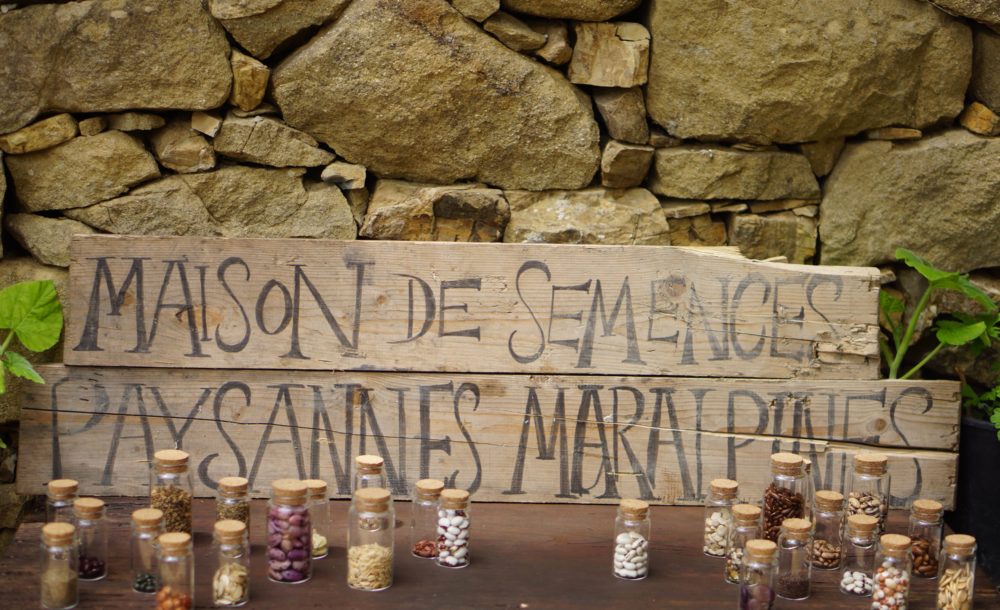 MAISON DE SEMENCES
PAYSANNES MARALPINES